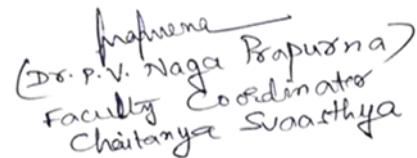 (Dr. P. V. Naga Prapurna)
Faculty Coordinator
Chaitanya Svaasthya